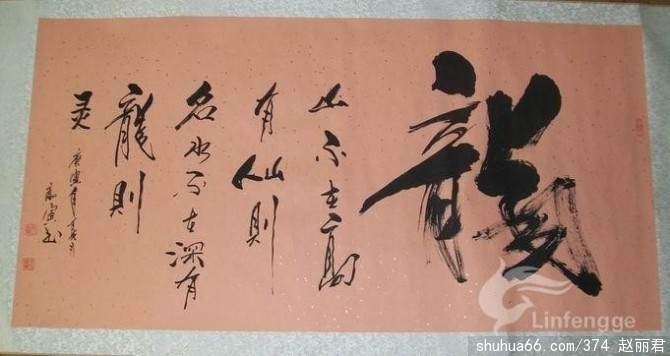 龍
山不在高
有仙則
名水不在深有
龍則
灵
庚寅年
Linfengge
shuhua66.com/374 赵丽君